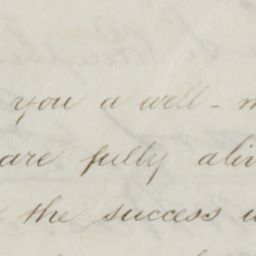 you a well-
are fully
the success